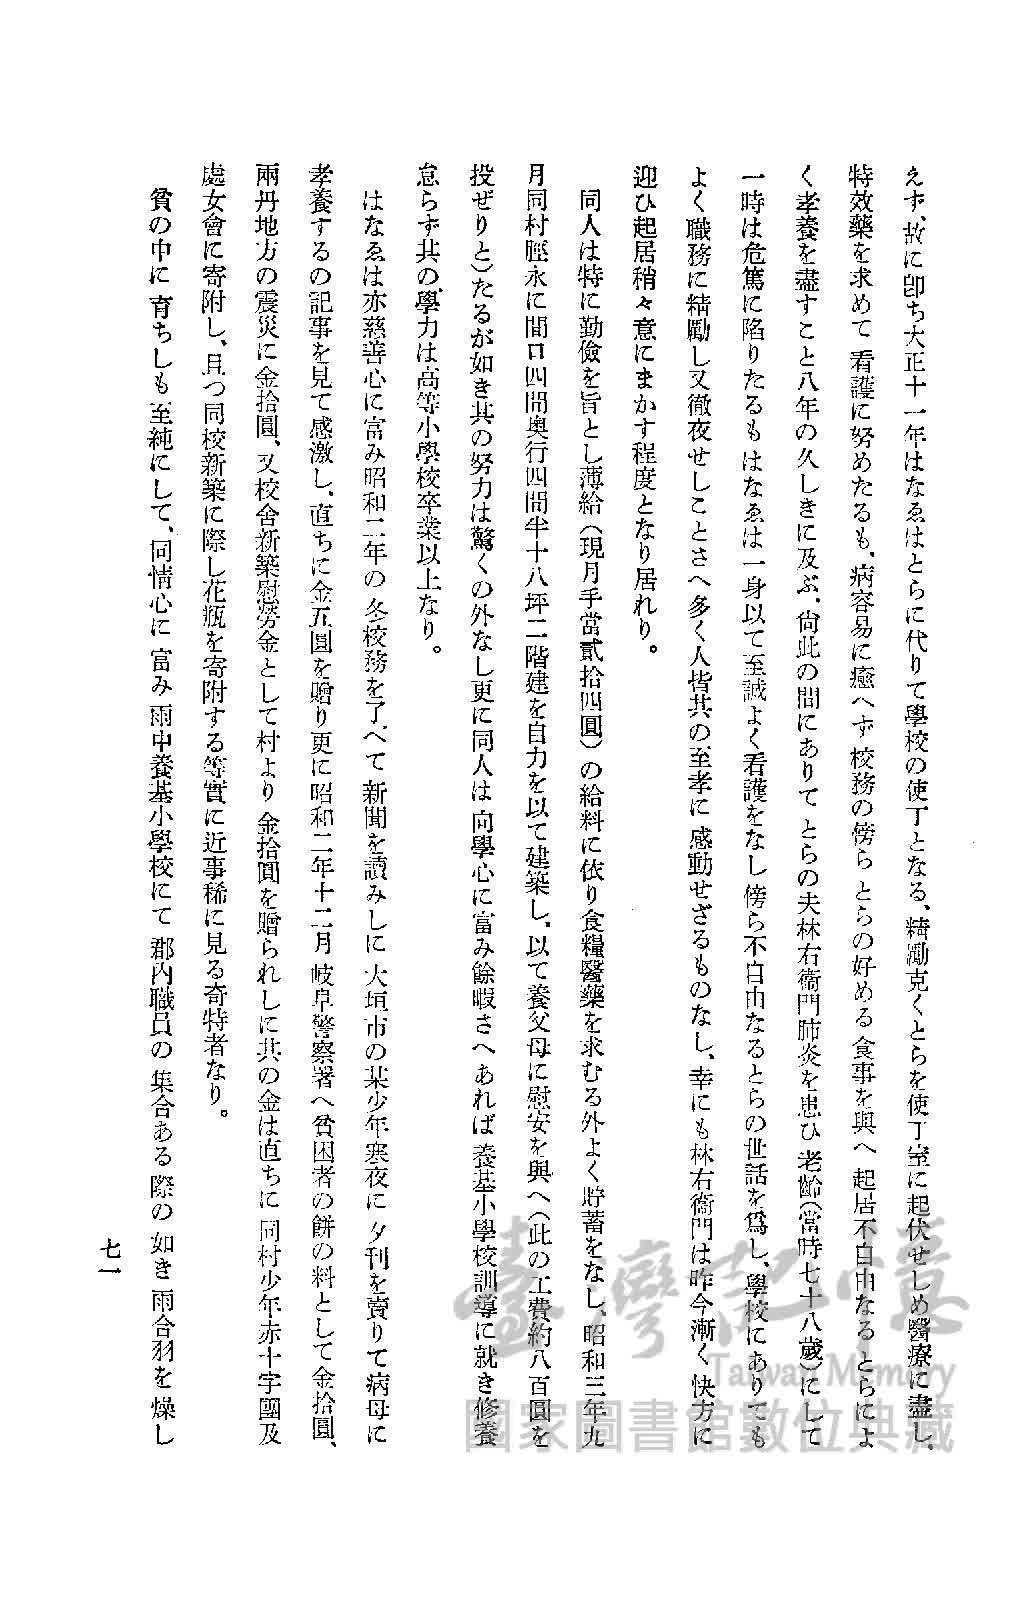 えず、故に卽ち大正十一年はなゑはとらに代りて學校の使丁となる、精勵克くとらを使丁室に起伏せしめ醫療に盡し、
特效藥を求めて看護に努めたるも、病容易に癒へず校務の傍らとらの好める食事を與へ起居不自由なるとらによ
く孝養を盡すこと八年の久しきに及ぶ、尙此の間にありてとらの夫林右衞門肺炎を患ひ老齡（當時七十八歲）にして
一時は危篤に陷りたるもはなゑは一身以て至誠よく看護をなし傍ら不自由なるとらの世話を爲し、學校にありても
よく職務に精勵し又徹夜せしことさへ多く人皆其の至孝に感動せざるものなし、幸にも林右衞門は昨今漸く快方に
迎ひ起居稍々意にまかす程度となり居れり。
同人は特に勤儉を旨とし薄給（現月手當貳拾四圓）の給料に依り食糧醫藥を求むる外よく貯蓄をなし、昭和三年九
月同村脛永に間口四間奧行四間半十八坪二階建を自力を以て建築し、以て養父母に慰安を與へ（此の工費約八百圓を
投ぜりと）たるが如き其の努力は驚くの外なし更に同人は向學心に富み餘暇さへあれば養基小學校訓導に就き修養
怠らず其の學力は高等小學校卒業以上なり。
はなゑは亦慈善心に富み昭和二年の冬校務を了へて新聞を讀みしに大垣市の某少年寒夜に夕刊を賣りて病母に
孝養するの記事を見て感激し、直ちに金五圓を贈り更に昭和二年十二月岐阜警察署へ貧困者の餠の料として金拾圓、
兩丹地方の震災に金拾圓、又校舍新築慰勞金として村より金拾圓を贈られしに其の金は直ちに同村少年赤十字團及
處女會に寄附し、且つ同校新築に際し花瓶を寄附する等實に近事稀に見る奇特者なり。
貧の中に育ちしも至純にして、同情心に富み雨中養基小學校にて郡內職員の集合ある際の如き雨合羽を燥し
七一
臺灣記憶
Taiwan Memory
國家圖書館數位典藏